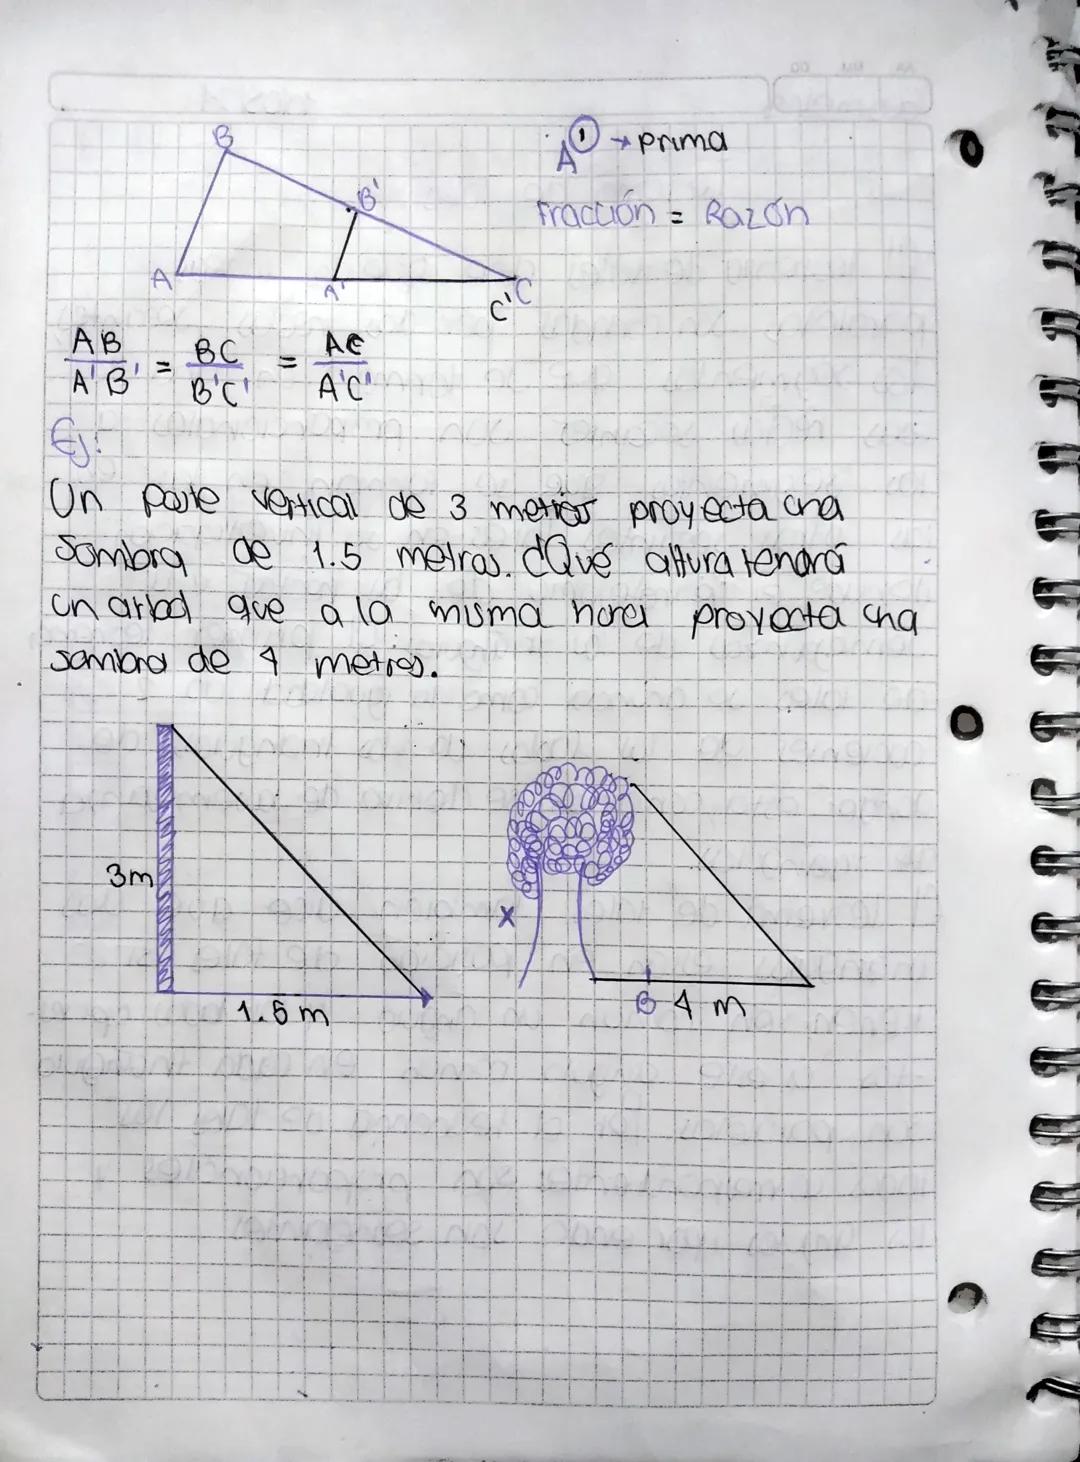 B
A' → prima
B'
Fracción = Razón
A
A'
C' C
AB/A'B' = BC/B'C' = AC/A'C'
Ej:
Un poste vertical de 3 metros proyecta una
sombra de 1.5 metros. ¿Qué altura tendrá
un arbol que a la misma hora proyecta una
sombra de 4 metros.
3m
x
1.5 m
B 4 m